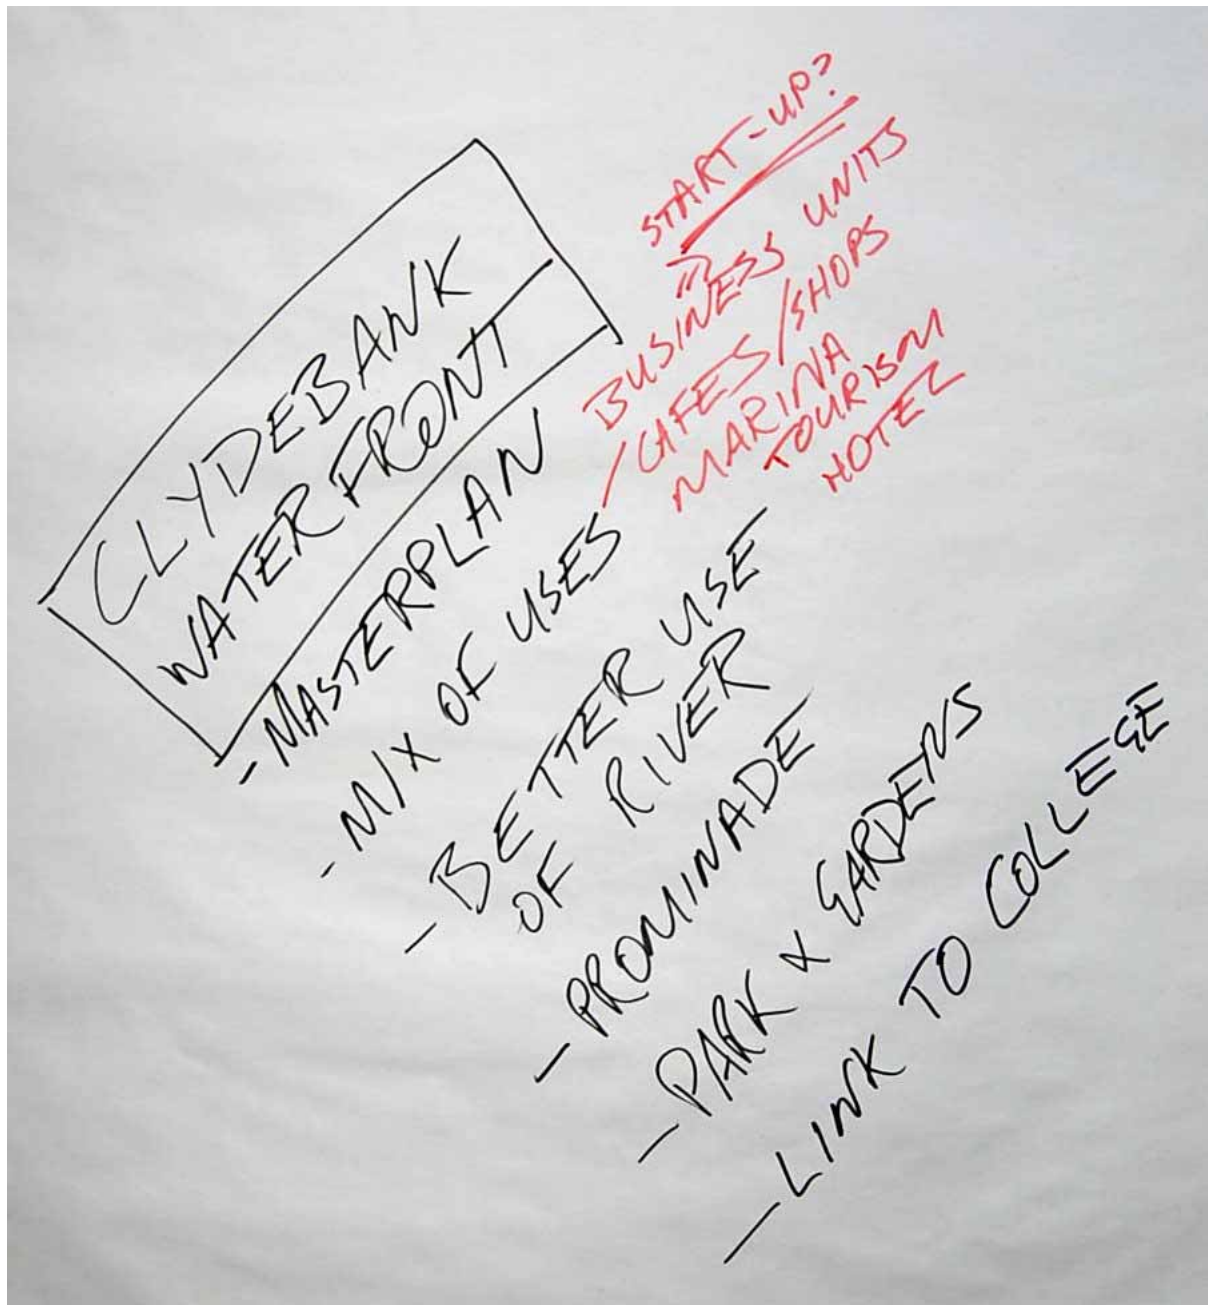 CLYDEBANK
WATERFRONT
- MASTERPLAN
- MIX OF USES
START-UP?
BUSINESS UNITS
/CAFES/SHOPS
MARINA
TOURISM
HOTEL
- BETTER USE
OF RIVER
- PROMINADE
- PARK & GARDENS
- LINK TO COLLEGE